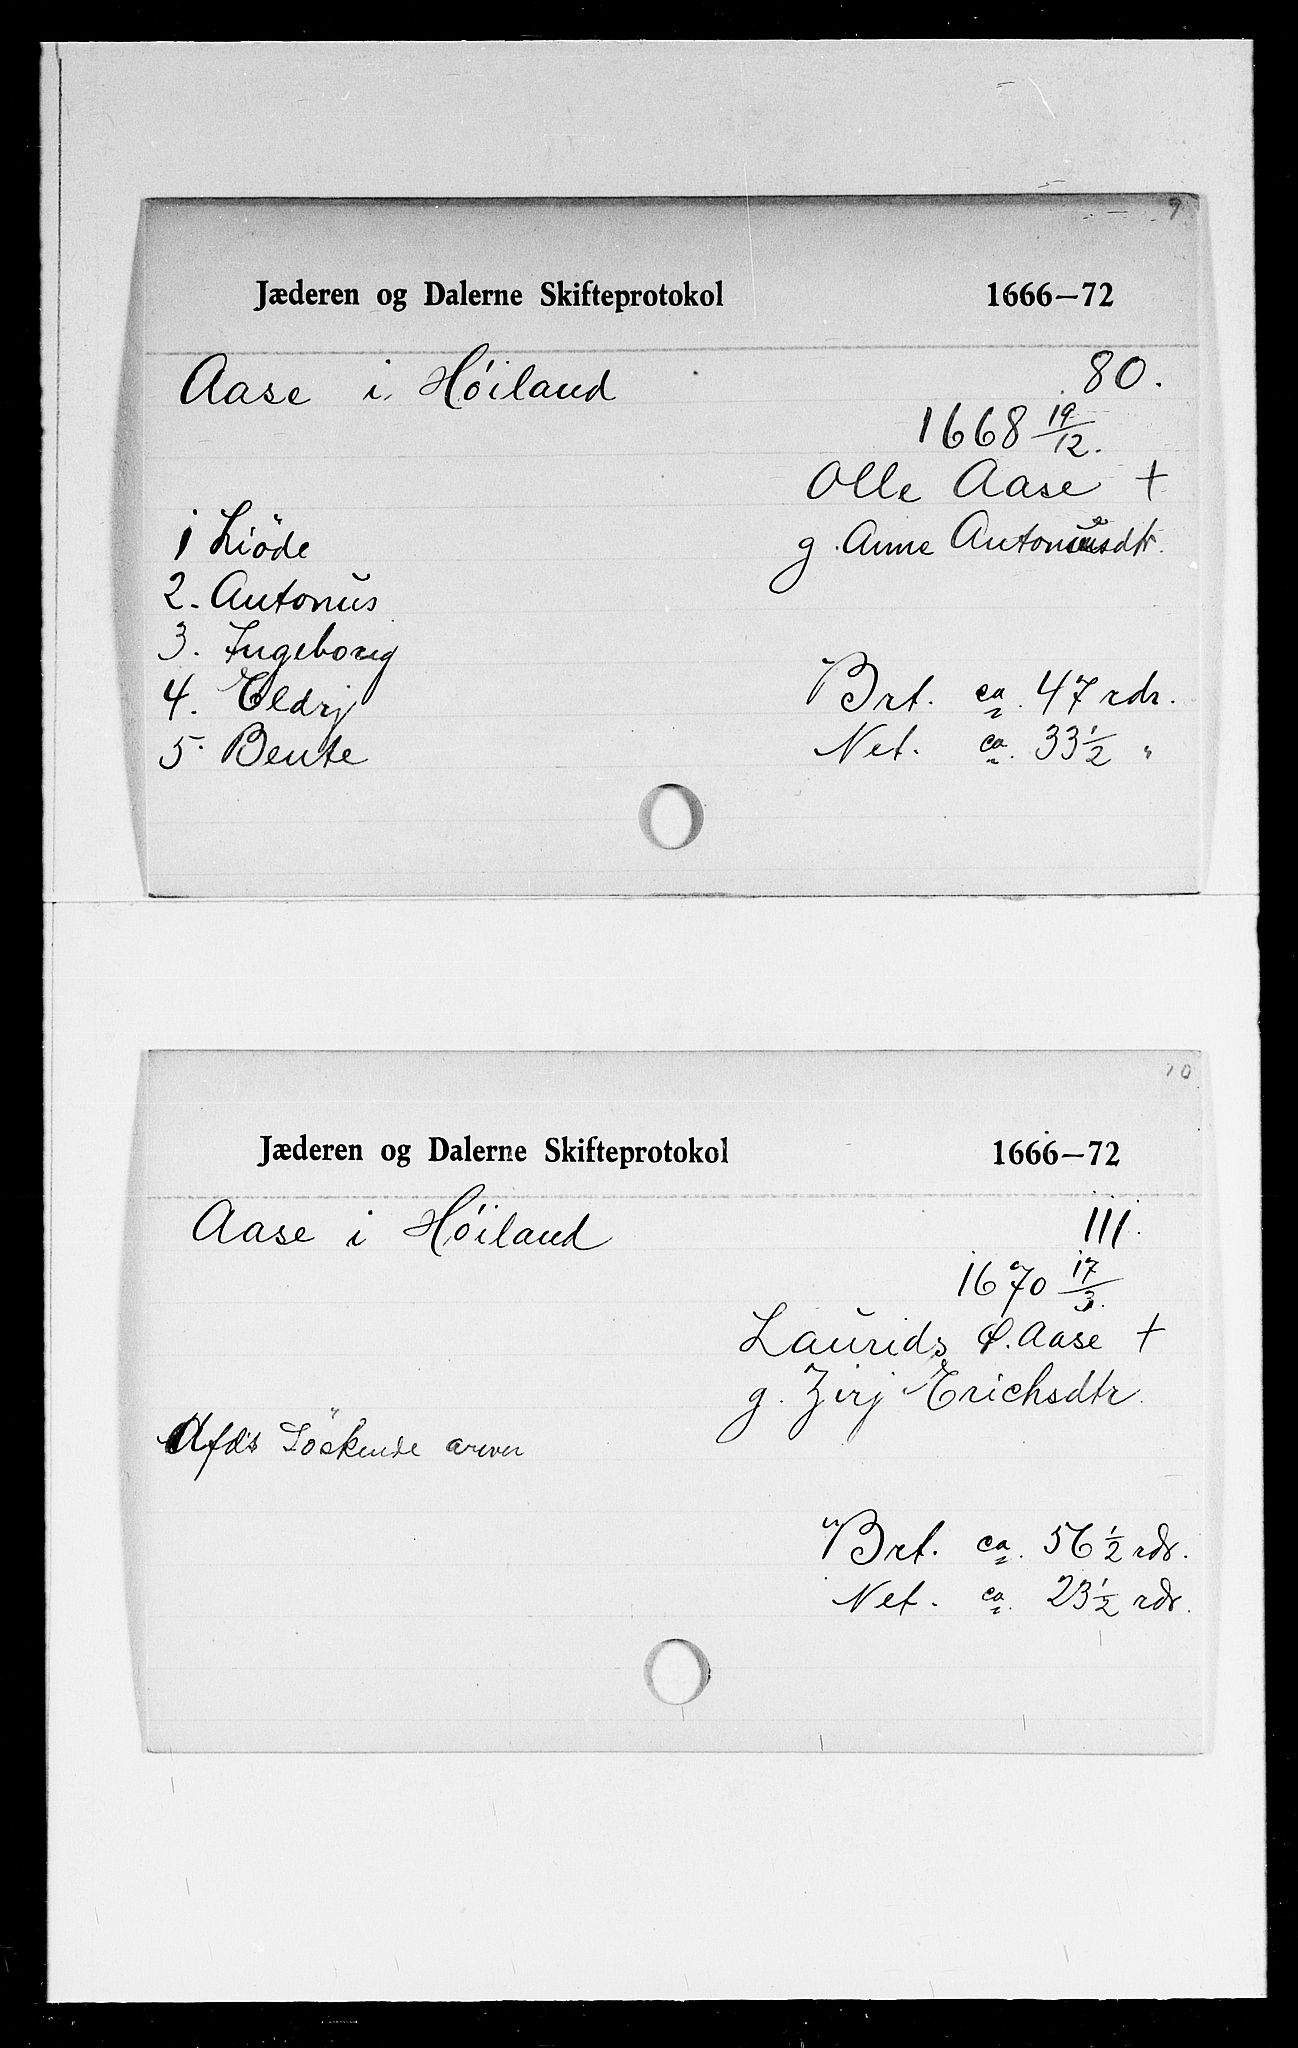 9
Jæderen og Dalerne Skifteprotokol 1666–72
Aase i Höiland 80.
1668 19/12.
Olle Aase +
1 Liöde g. Anne Antoniusdtr.
2. Antonius
3. Ingeborrig
4. Eldrj Brt. ca. 47 rdr.
5. Bente Net. ca. 33 1/2 "
10
Jæderen og Dalerne Skifteprotokol 1666–72
Aase i Höiland 111.
1670 17/3.
Laurids Aase +
g. Zirj Erichsdtr.
Afds Söskende arver
Brt. ca. 56 1/2 rdr.
Net. ca. 23 1/2 rdr.